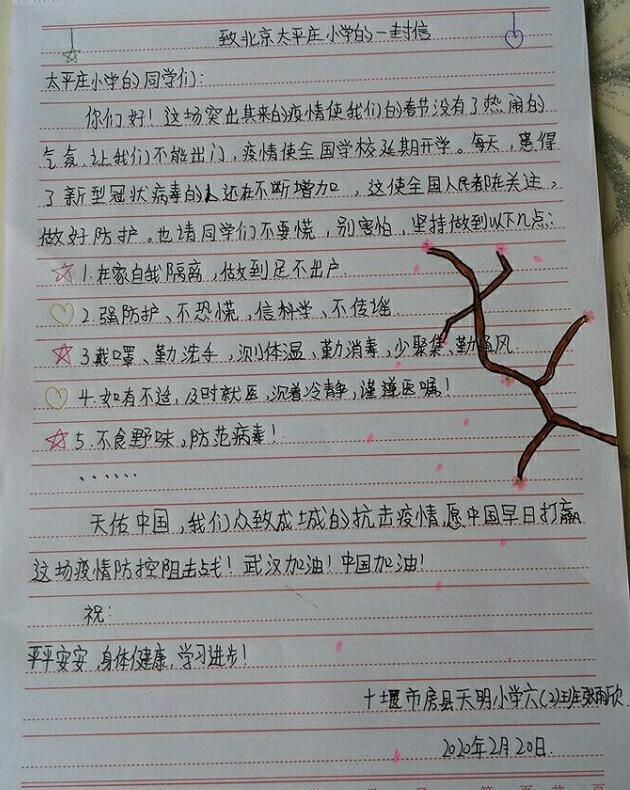 致北京太平庄小学的一封信
太平庄小学的同学们:
你们好!这场突出其来的疫情使我们的春节没有了热闹的
气氛,让我们不能出门,疫情使全国学校延期开学。每天,患得
了新型冠状病毒的人还在不断增加,这使全国人民都在关注,
做好防护。也请同学们不要慌,别害怕,坚持做到以下几点:
1.在家自我隔离,做到足不出户.
2.强防护、不恐慌,信科学、不传谣.
3戴口罩、勤洗手,测体温、勤消毒,少聚集、勤通风.
4.如有不适,及时就医,沉着冷静,谨遵医嘱!
5.不食野味,防范病毒!
······
天佑中国,我们众致成城的抗击疫情,愿中国早日打赢
这场疫情防控阻击战!武汉加油!中国加油!
祝:
平平安安,身体健康,学习进步!
十堰市房县天明小学六(2)班张雨欣
2020年2月20日.